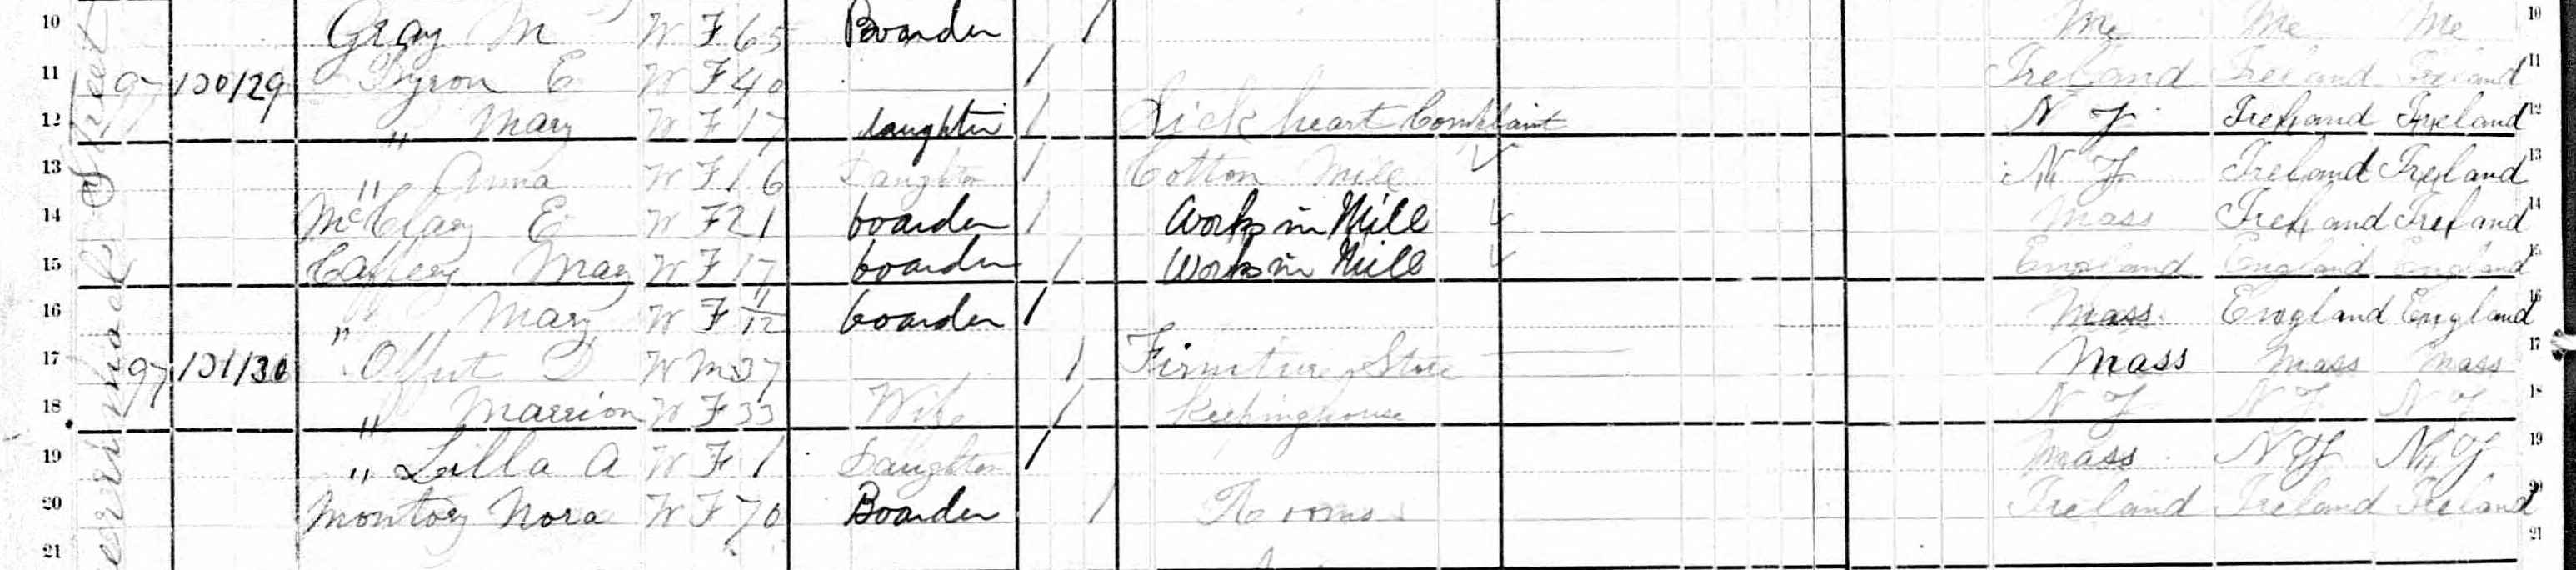 10 Gray M W F 65 Boarder / Me Me Me 10
11 97 100/29 Byron E W F 40 / Ireland Ireland Ireland 11
12 " Mary W F 17 daughter / Sick heart Complaint N J Ireland Ireland 12
13 " Anna W F 16 Daughter / Cotton Mill N J Ireland Ireland 13
14 McClary E W F 21 boarder / Works in Mill Mass Ireland Ireland 14
15 Caffery Mary W F 17 boarder / Works in Mill England England England 15
16 " " Mary W F 11/12 boarder / Mass England England 16
17 97 101/30 Offut D W M 37 / Firniture Store Mass Mass Mass 17
18 " Marrion W F 33 Wife / Keepinghouse N J N J N J 18
19 " Lilla A W F 1 Daughter / Mass N J N J 19
20 Montoy Nora W F 70 Boarder / Rooms Ireland Ireland Ireland 20
21 21
Street